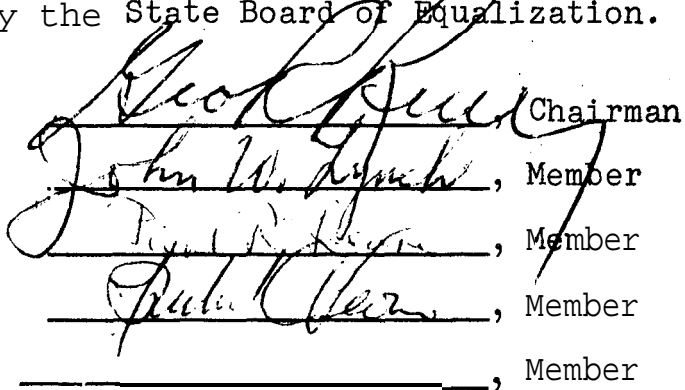 y the State Board of Equalization.
Geo R Reilly, Chairman
John W. Lynch, Member
, Member
Paul R. Leake, Member
, Member